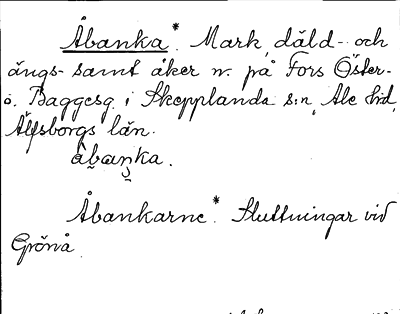 Åbanka*. Mark, däld- och
ängs- samt åker n. på Fors Öster-
o. Baggesg. i Skepplanda s:n, Ale hd,
Älfsborgs län.
åbaŋka.
Åbankarne*. Sluttningar vid
Grönå